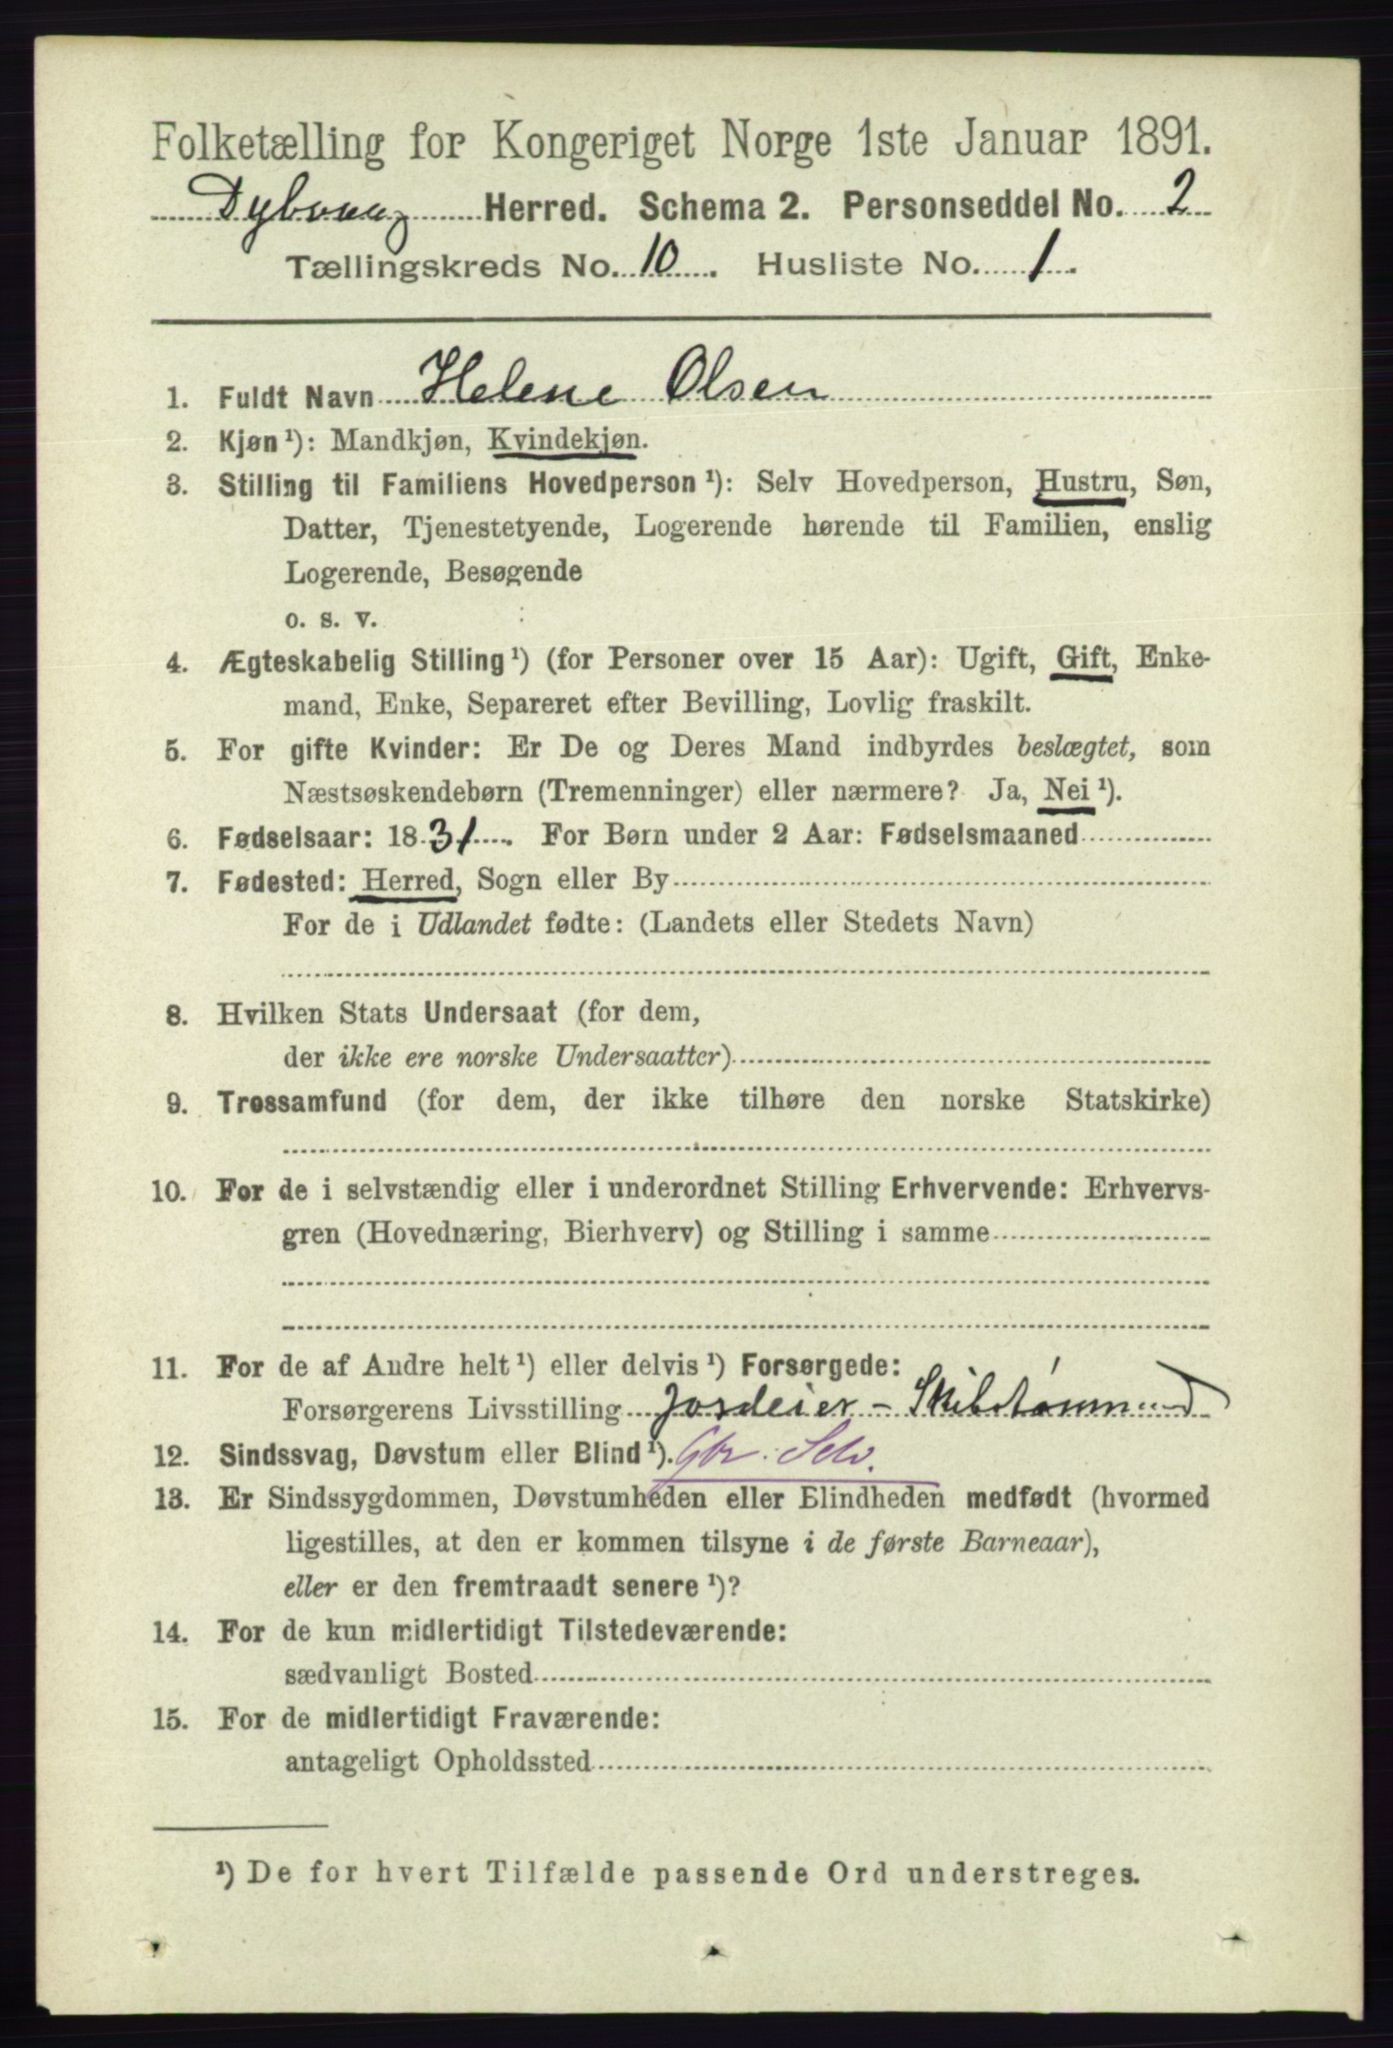 Folketælling for Kongeriget Norge 1ste Januar 1891.
Dybvaag Herred. Schema 2. Personseddel No. 2
Tællingskreds No. 10. Husliste No. 1.
1. Fuldt Navn Helene Olsen
2. Kjøn¹): Mandkjøn, Kvindekjøn.
3. Stilling til Familiens Hovedperson¹): Selv Hovedperson, Hustru, Søn,
Datter, Tjenestetyende, Logerende hørende til Familien, enslig
Logerende, Besøgende
o. s. v.
4. Ægteskabelig Stilling¹) (for Personer over 15 Aar): Ugift, Gift, Enke-
mand, Enke, Separeret efter Bevilling, Lovlig fraskilt.
5. For gifte Kvinder: Er De og Deres Mand indbyrdes beslægtet, som
Næstsøskendebørn (Tremenninger) eller nærmere? Ja, Nei¹).
6. Fødselsaar: 1831. For Børn under 2 Aar: Fødselsmaaned
7. Fødested: Herred, Sogn eller By
For de i Udlandet fødte: (Landets eller Stedets Navn)
8. Hvilken Stats Undersaat (for dem,
der ikke ere norske Undersaatter)
9. Trossamfund (for dem, der ikke tilhøre den norske Statskirke)
10. For de i selvstændig eller i underordnet Stilling Erhvervende: Erhvervs-
gren (Hovednæring, Bierhverv) og Stilling i samme
11. For de af Andre helt¹) eller delvis¹) Forsørgede:
Forsørgerens Livsstilling Jordeier - Skibstømmermd
12. Sindssvag, Døvstum eller Blind¹). Gbr. Selv.
13. Er Sindssygdommen, Døvstumheden eller Blindheden medfødt (hvormed
ligestilles, at den er kommen tilsyne i de første Barneaar),
eller er den fremtraadt senere¹)?
14. For de kun midlertidigt Tilstedeværende:
sædvanligt Bosted
15. For de midlertidigt Fraværende:
antageligt Opholdssted
¹) De for hvert Tilfælde passende Ord understreges.